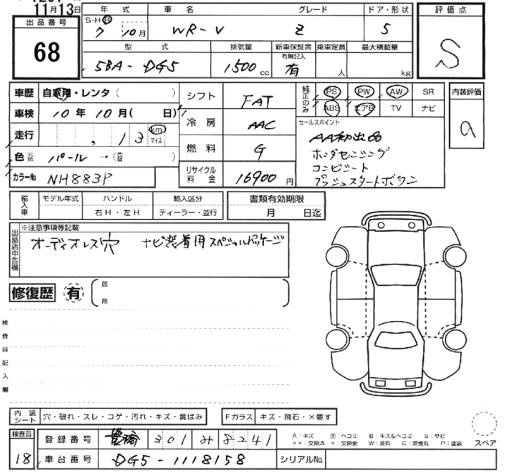 11月13日
出品番号
68
年式 車名 グレード ドア・形状
S・H・R 7年10月 WR-V Z 5
型式 排気量 新車保証書 有無記入 乗車定員 最大積載量
5BA-DG5 1500cc 有 人 kg
評価点
S
車歴 自家用・レンタ( )
車検 10年10月( 日)
走行 , 13 km マイル
色 元色 パール→(
カラーNo NH883P
シフト FAT
冷房 AAC
燃料 G
リサイクル料金 16900円
純正のみ PS PW AW SR
ABS エアB TV ナビ
セールスポイント
AA初出品
ホンダセンシング
コンビシート
プッシュスタートボタン
内装評価
a
輸入車 モデル年式 ハンドル 輸入区分
年 右H・左H ディーラー・並行
書類有効期限
月 日迄
出品店申告欄
※注意事項等記載
オーディオレス穴 ナビ装着用スペシャルパッケージ
修復歴 有
検査員記入欄
内装シート 穴・破れ・スレ・コゲ・汚れ・キズ・黄ばみ
Fガラス キズ・飛石・×要す
検査員
18
登録番号 豊橋 301 み 8241
車台番号 DG5-1118158
シリアルNo.
スペア